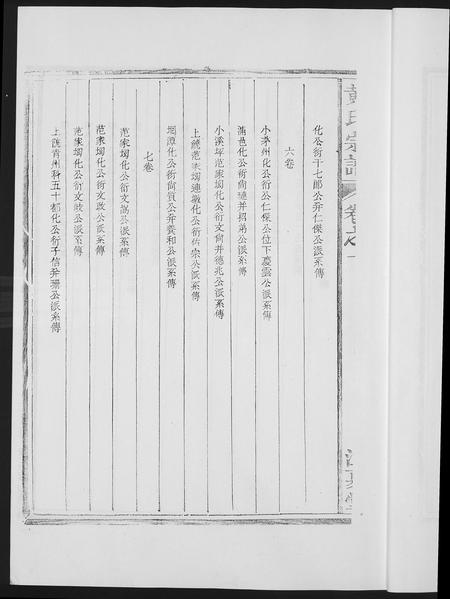 黃氏宗譜
卷之一
江夏堂
化公衍千七郎公弅仁傑公派系傳
六卷
小茅州化公衍公仁傑公位下慶雲公派系傳
蒲邑化公衍尚璉并招弟公派系傳
小溪坪范家坳化公衍文尚并德兆公派系傳
上饒范家坳連墩化公衍佑宗公派系傳
塅潭化公衍尚質公弅養和公派系傳
七卷
范家坳化公衍文高公派系傳
范家坳化公衍文政公派系傳
范家坳化公衍文敏公派系傳
上饒青州科五十都化公衍子信弅珊公派系傳